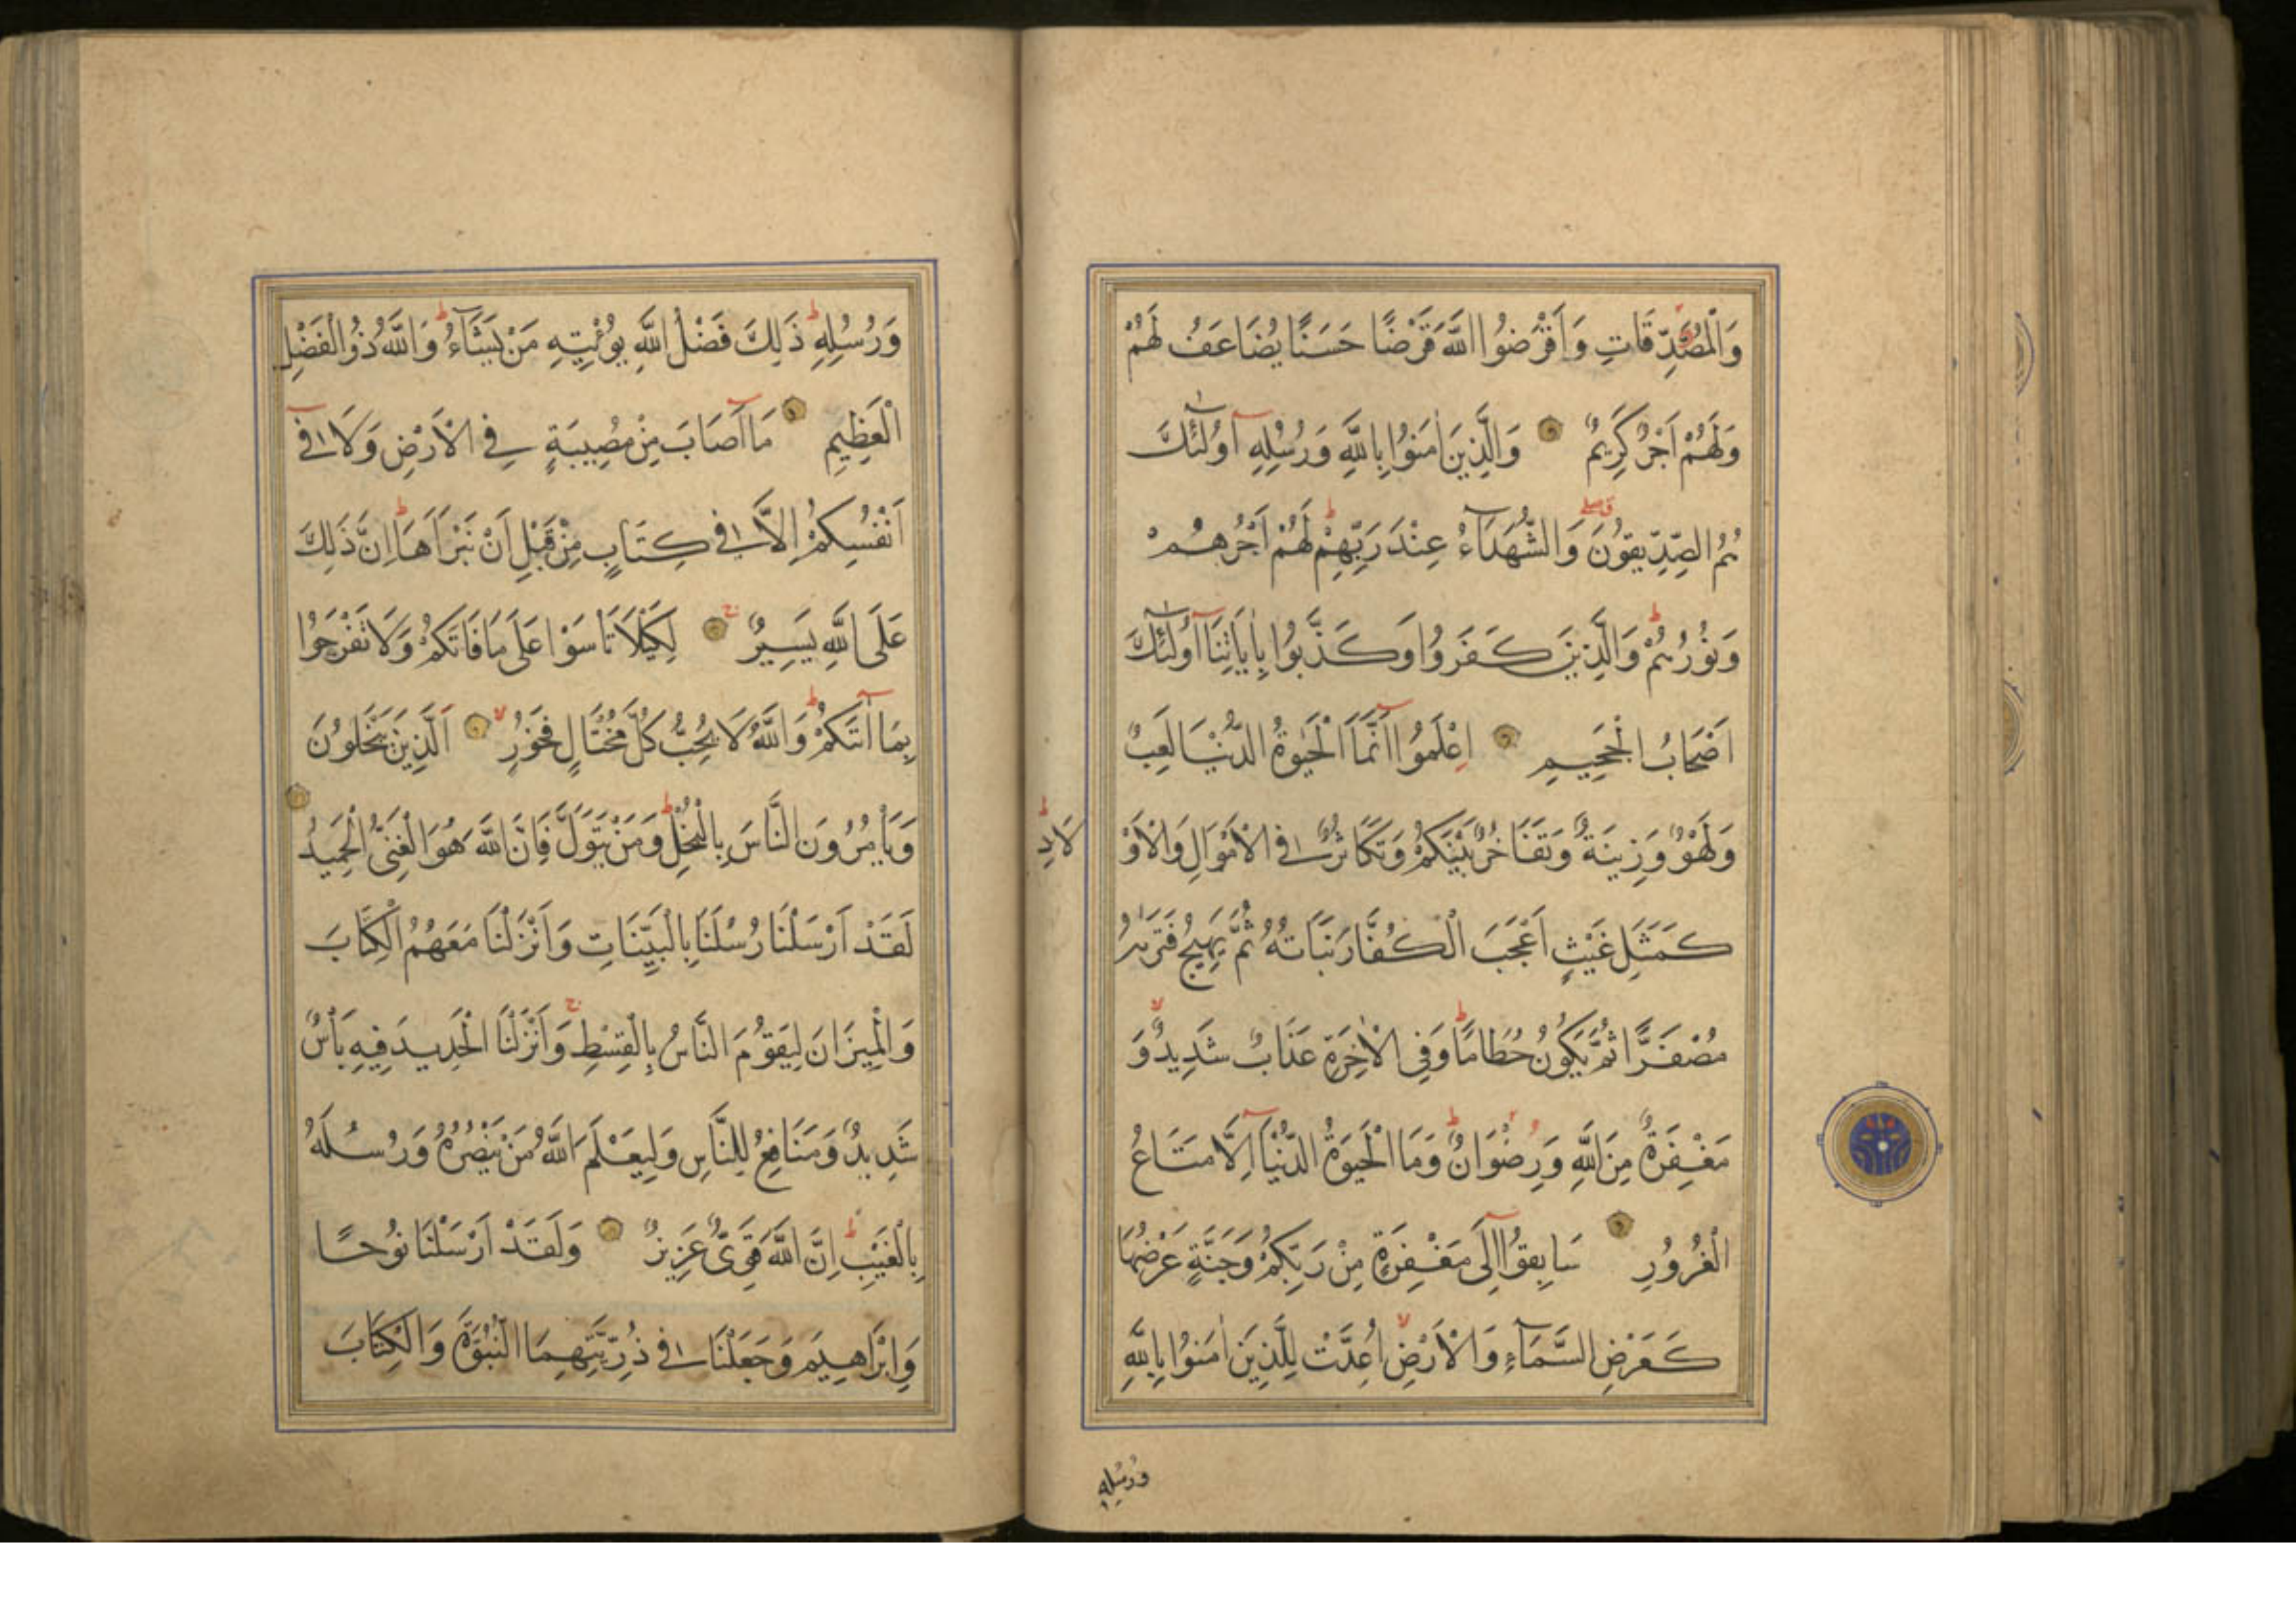 وَالْمُصَّدِّقَاتِ وَاَقْرَضُوا اللَّهَ قَرْضًا حَسَنًا يُضَاعَفُ لَهُمْ
وَلَهُمْ اَجْرٌ كَرِيمٌ وَالَّذِينَ اٰمَنُوا بِاللَّهِ وَرُسُلِهِ اُولٰئِكَ
هُمُ الصِّدِّيقُونَ وَالشُّهَدَاءُ عِنْدَ رَبِّهِمْ لَهُمْ اَجْرُهُمْ
وَنُورُهُمْ وَالَّذِينَ كَفَرُوا وَكَذَّبُوا بِاٰيَاتِنَا اُولٰئِكَ
اَصْحَابُ الْجَحِيمِ اِعْلَمُوا اَنَّمَا الْحَيٰوةُ الدُّنْيَا لَعِبٌ
وَلَهْوٌ وَزِينَةٌ وَتَفَاخُرٌ بَيْنَكُمْ وَتَكَاثُرٌ فِي الْاَمْوَالِ وَالْاَوْ
لَادِ
كَمَثَلِ غَيْثٍ اَعْجَبَ الْكُفَّارَ نَبَاتُهُ ثُمَّ يَهِيجُ فَتَرٰيهُ
مُصْفَرًّا ثُمَّ يَكُونُ حُطَامًا وَفِي الْاٰخِرَةِ عَذَابٌ شَدِيدٌ وَ
مَغْفِرَةٌ مِنَ اللَّهِ وَرِضْوَانٌ وَمَا الْحَيٰوةُ الدُّنْيَا اِلَّا مَتَاعُ
الْغُرُورِ سَابِقُوا اِلَى مَغْفِرَةٍ مِنْ رَبِّكُمْ وَجَنَّةٍ عَرْضُهَا
كَعَرْضِ السَّمَاءِ وَالْاَرْضِ اُعِدَّتْ لِلَّذِينَ اٰمَنُوا بِاللَّهِ
وَرُسُلِهِ
وَرُسُلِهِ ذَلِكَ فَضْلُ اللَّهِ يُؤْتِيهِ مَنْ يَشَاءُ وَاللَّهُ ذُو الْفَضْلِ
الْعَظِيمِ مَا اَصَابَ مِنْ مُصِيبَةٍ فِي الْاَرْضِ وَلَا فِي
اَنْفُسِكُمْ اِلَّا فِي كِتَابٍ مِنْ قَبْلِ اَنْ نَبْرَاَهَا اِنَّ ذَلِكَ
عَلَى اللَّهِ يَسِيرٌ لِكَيْلَا تَاْسَوْا عَلَى مَا فَاتَكُمْ وَلَا تَفْرَحُوا
بِمَا اٰتَىكُمْ وَاللَّهُ لَا يُحِبُّ كُلَّ مُخْتَالٍ فَخُورٍ اَلَّذِينَ يَبْخَلُونَ
وَيَاْمُرُونَ النَّاسَ بِالْبُخْلِ وَمَنْ يَتَوَلَّ فَاِنَّ اللَّهَ هُوَ الْغَنِيُّ الْحَمِيدُ
لَقَدْ اَرْسَلْنَا رُسُلَنَا بِالْبَيِّنَاتِ وَاَنْزَلْنَا مَعَهُمُ الْكِتَابَ
وَالْمِيزَانَ لِيَقُومَ النَّاسُ بِالْقِسْطِ وَاَنْزَلْنَا الْحَدِيدَ فِيهِ بَاْسٌ
شَدِيدٌ وَمَنَافِعُ لِلنَّاسِ وَلِيَعْلَمَ اللَّهُ مَنْ يَنْصُرُهُ وَرُسُلَهُ
بِالْغَيْبِ اِنَّ اللَّهَ قَوِيٌّ عَزِيزٌ وَلَقَدْ اَرْسَلْنَا نُوحًا
وَاِبْرَاهِيمَ وَجَعَلْنَا فِي ذُرِّيَّتِهِمَا النُّبُوَّةَ وَالْكِتَابَ